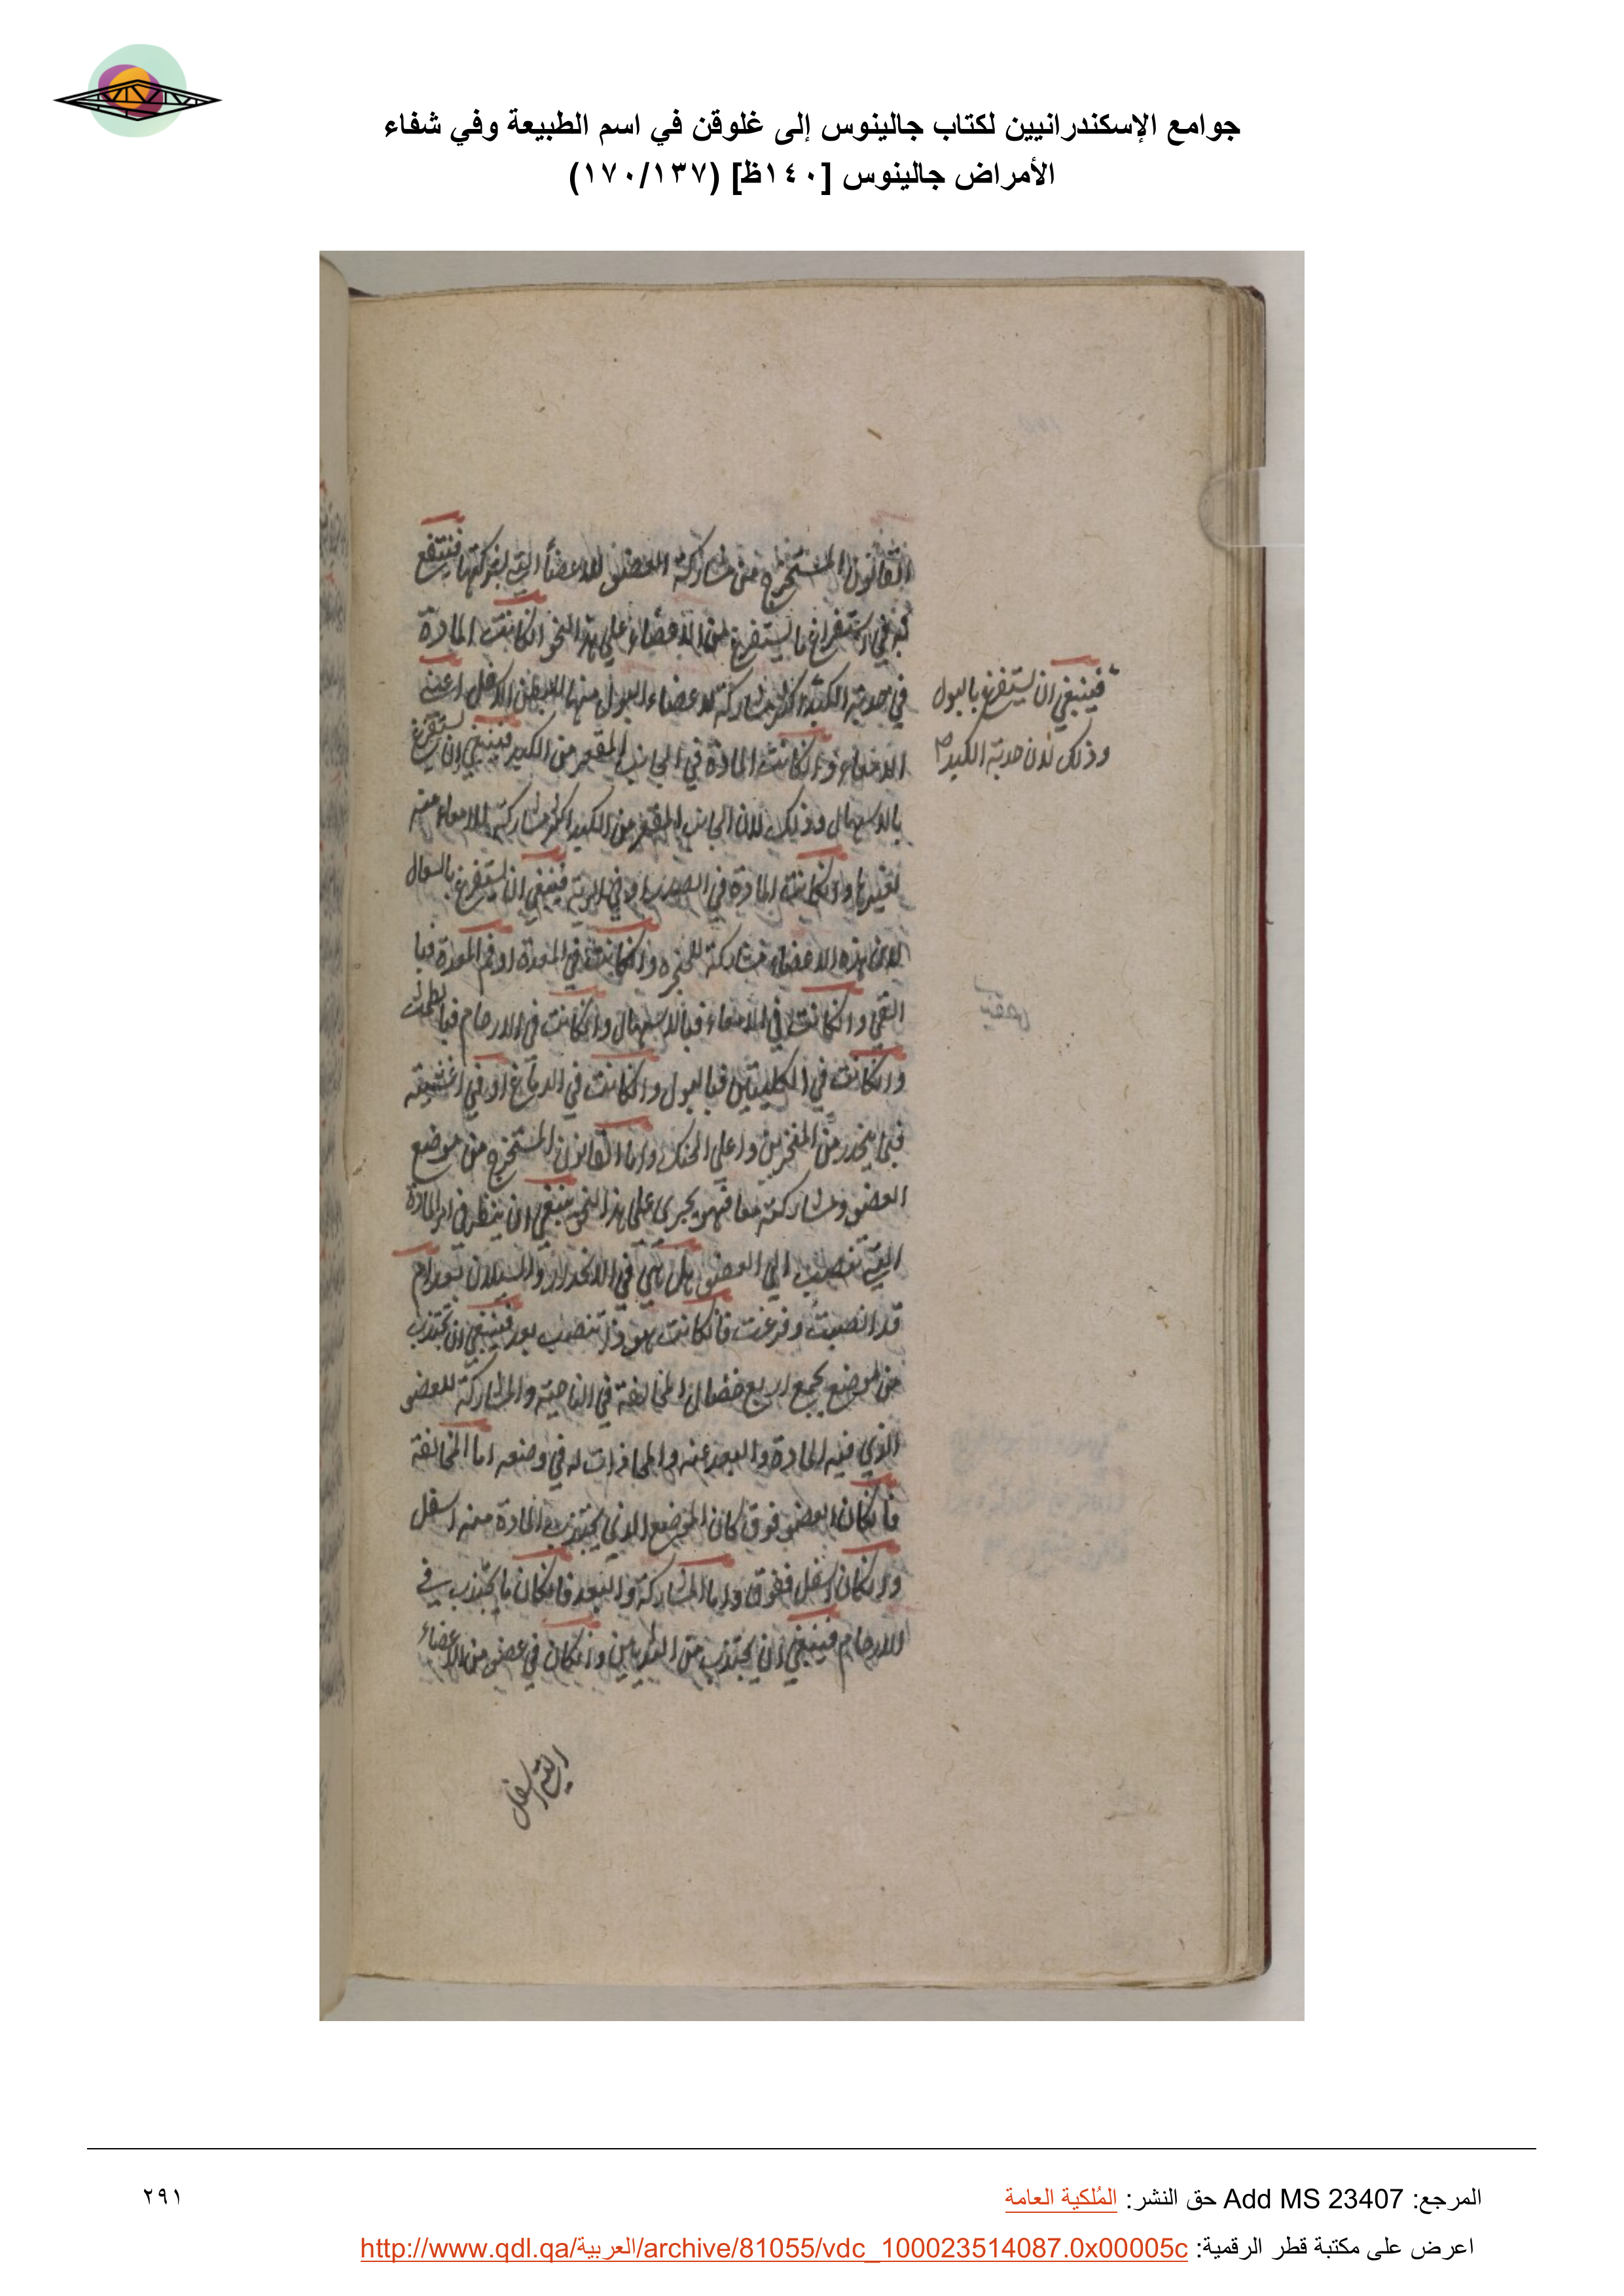 جوامع الإسكندرانيين لكتاب جالينوس إلى غلوقن في اسم الطبيعة وفي شفاء
الأمراض جالينوس [١٤٠ظ] (١٧٠/١٣٧)
القانون المستخرج من مشاركة العضو للاعضاء التي يشركها فينتفع
به في استفراغ ما يستفرغ من الاعضاء على هذا النحو ان كانت المادة
في حدبة الكبد اكثر مشاركة لاعضاء البول منها للبطن الاسفل اعني
فينبغي ان يستفرغ بالبول
وذلك لان حدبة الكبد
الامعاء وان كانت المادة في الجانب المقعر من الكبد فينبغي ان يستفرغ
بالاسهال وذلك لان الجانب المقعر من الكبد اكثر مشاركة للامعاء منه
لغيرها وان كانت المادة في الصدر او في الرية فينبغي ان يستفرغ بالسعال
لان هذه الاعضاء مشاركة للحنجره وان كانت في المعدة او فم المعدة فبا
القي وان كانت في الامعاء فبالاسهال وان كانت في الارحام فبالطمث
وان كانت في الكليتين فبالبول وان كانت في الدماغ او في اغشيته
فبما ينحدر من المنخرين واعلي الحنك واما القانون المستخرج من موضع
العضو ومشاركته معا فهو يجري على هذا النحو ينبغي ان ينظر في امر المادة
التي تنصب الي العضو هل هي في الانحدار والسيلان بعد ام
قد انصبت وفرغت فان كانت هو ذا تنصب بعد فينبغي ان تجتذب
من موضع يجمع اربع خصال المخالفة في الناحية والمشاركة للعضو
الذي فيه المادة والبعد عنه والمحاذات له في وضعه اما المخالفة
فان كان العضو فوق كان الموضع الذي يجتذب المادة منه اسفل
وان كان اسفل ففوق واما المشاركة والبعد فان كان ما يجتذب في
الارحام فينبغي ان يجتذب من الثديين وان كان في عضو من الاعضاء
التي اسفل
المرجع: Add MS 23407 حق النشر: المُلكية العامة
٢٩١
اعرض على مكتبة قطر الرقمية: http://www.qdl.qa/العربية/archive/81055/vdc_100023514087.0x00005c